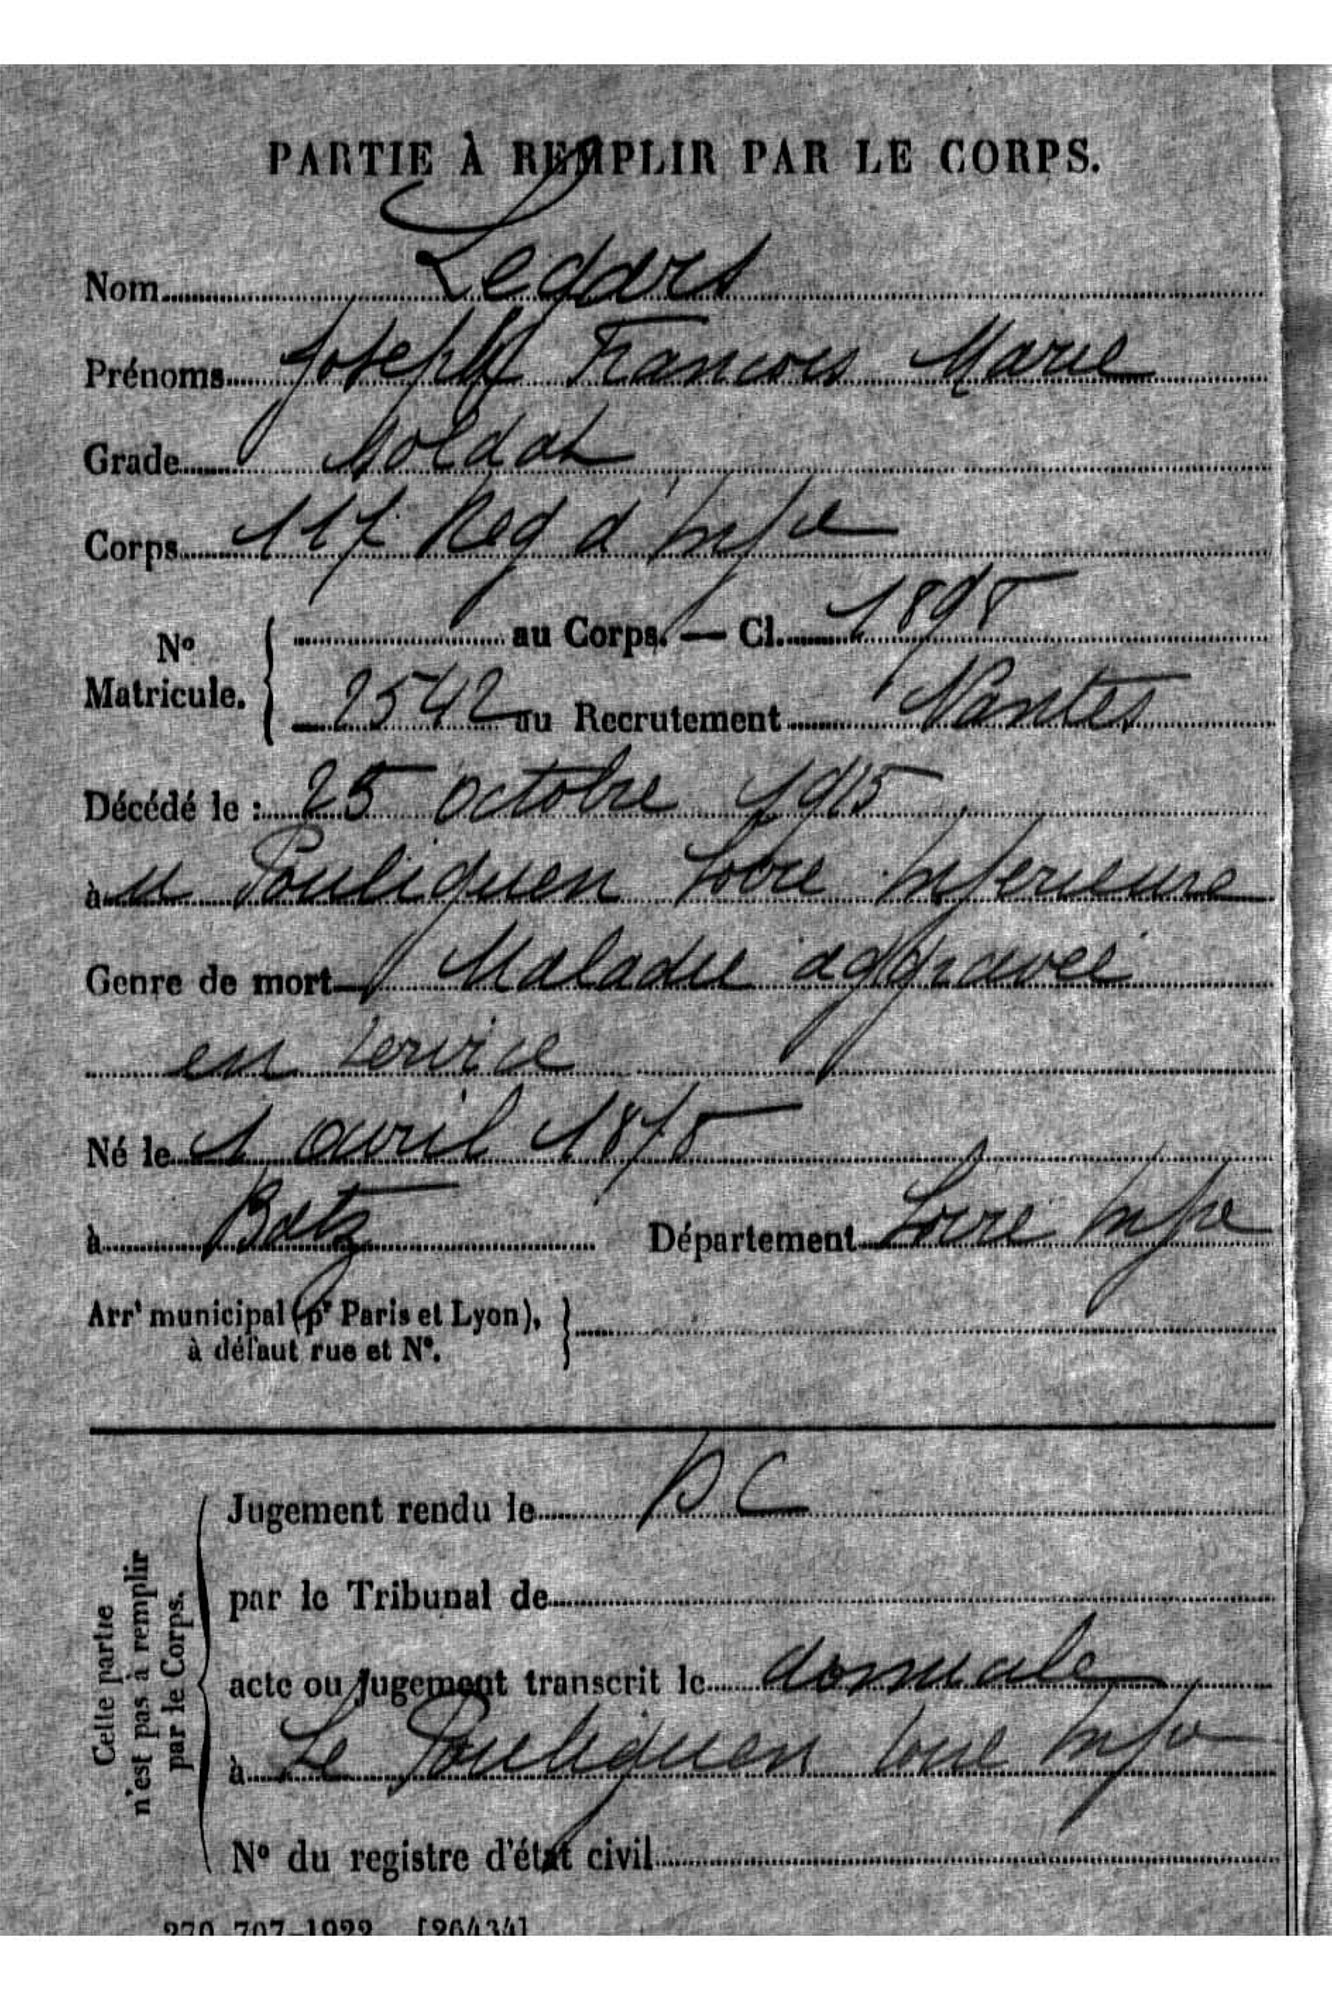 PARTIE À REMPLIR PAR LE CORPS.
Nom Legars
Prénoms Joseph Francois Marie
Grade Soldat
Corps 117 Reg d'Infie
N° Matricule. au Corps. — Cl. 1898
2542 au Recrutement Nantes
Décédé le : 25 octobre 1915
à Pouliguen Loire Inferieure
Genre de mort Maladie aggravée
en service
Né le 1 avril 1878
à Batz Département Loire Infre
Arrt municipal (pr Paris et Lyon),
à défaut rue et N°.
Jugement rendu le DC
par le Tribunal de
acte ou jugement transcrit le domicile
à Le Pouliguen Loire Infre
N° du registre d'état civil
Cette partie
n'est pas à remplir
par le Corps.
270-707-1922. [26434]